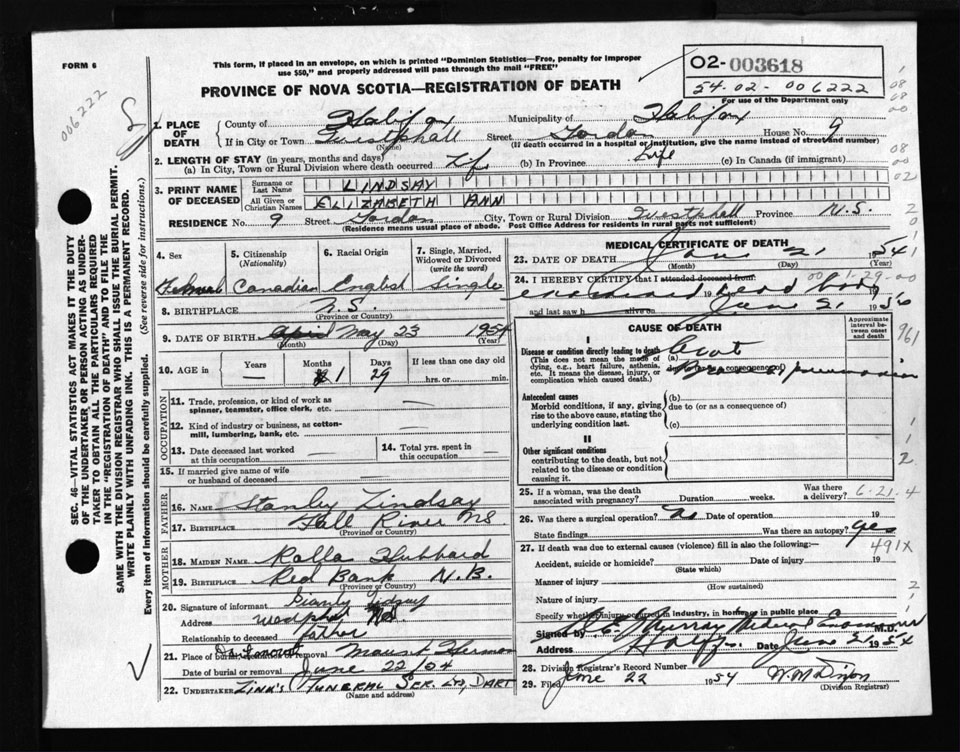 FORM 6
This form, if placed in an envelope, on which is printed "Dominion Statistics—Free, penalty for improper
use $50," and properly addressed will pass through the mail "FREE"
O2- 003618
54-02-006222
For use of the Department only
006222
PROVINCE OF NOVA SCOTIA—REGISTRATION OF DEATH
1. PLACE OF DEATH
County of Halifax Municipality of Halifax
If in City or Town Westphall Street Gordon House No. 9
(Name) (If death occurred in a hospital or institution, give the name instead of street and number)
2. LENGTH OF STAY (in years, months and days)
(a) In City, Town or Rural Division where death occurred Life (b) In Province Life (c) In Canada (if immigrant)
3. PRINT NAME OF DECEASED
Surname or Last Name LINDSAY
All Given or Christian Names ELIZABETH ANN
RESIDENCE No. 9 Street Gordon City, Town or Rural Division Westphall Province N.S.
(Residence means usual place of abode. Post Office Address for residents in rural parts not sufficient)
4. Sex
5. Citizenship (Nationality)
6. Racial Origin
7. Single, Married, Widowed or Divorced (write the word)
Female Canadian English Single
8. BIRTHPLACE N.S.
(Province or Country)
9. DATE OF BIRTH April May 23 1954
(Month) (Day) (Year)
10. AGE in Years Months Days If less than one day old
— 1 29 hrs. or min.
OCCUPATION
11. Trade, profession, or kind of work as spinner, teamster, office clerk, etc. —
12. Kind of industry or business, as cotton-mill, lumbering, bank, etc. —
13. Date deceased last worked at this occupation —
14. Total yrs. spent in this occupation —
15. If married give name of wife or husband of deceased —
FATHER
16. Name Stanley Lindsay
17. Birthplace Fall River NS
(Province or Country)
MOTHER
18. MAIDEN NAME Hubbard
19. BIRTHPLACE Red Bank N.B.
(Province or Country)
20. Signature of informant
Address
Relationship to deceased father
21. Place of burial, cremation or removal Mount Hermon
Date of burial or removal June 22/54
22. UNDERTAKER ZINK'S FUNERAL SER. LTD, DART
(Name and address)
MEDICAL CERTIFICATE OF DEATH
23. DATE OF DEATH June 21 1954
(Month) (Day) (Year)
24. I HEREBY CERTIFY that I attended deceased from:
examined 19 dead body 19
and last saw h alive on June 21 19
CAUSE OF DEATH
Approximate interval between onset and death
I
Disease or condition directly leading to death
(This does not mean the mode of dying, e.g., heart failure, asthenia, etc. It means the disease, injury, or complication which caused death.)
(a)
due to (or as a consequence of)
pneumonia
Antecedent causes
Morbid conditions, if any, giving rise to the above cause, stating the underlying condition last.
(b)
due to (or as a consequence of)
(c)
II
Other significant conditions
contributing to the death, but not related to the disease or condition causing it.
25. If a woman, was the death associated with pregnancy? Duration weeks. Was there a delivery? 6-21-4
26. Was there a surgical operation? No Date of operation 19
State findings Was there an autopsy? Yes
27. If death was due to external causes (violence) fill in also the following:— 491X
Accident, suicide or homicide? Date of injury 19
(State which)
Manner of injury
(How sustained)
Nature of injury
Specify whether injury occurred in industry, in home or in public place
Signed by Murray Medical Examiner M.D.
Address Halifax Date June 21 1954
28. Division Registrar's Record Number
29. Filed June 22 1954 W. M. Dixon
(Division Registrar)
SEC. 46—VITAL STATISTICS ACT MAKES IT THE DUTY
OF THE UNDERTAKER OR PERSON ACTING AS UNDER-
TAKER TO OBTAIN ALL THE PARTICULARS REQUIRED
IN THE "REGISTRATION OF DEATH" AND TO FILE THE
SAME WITH THE DIVISION REGISTRAR WHO SHALL ISSUE THE BURIAL PERMIT.
WRITE PLAINLY WITH UNFADING INK. THIS IS A PERMANENT RECORD.
Every item of information should be carefully supplied. (See reverse side for instructions.)